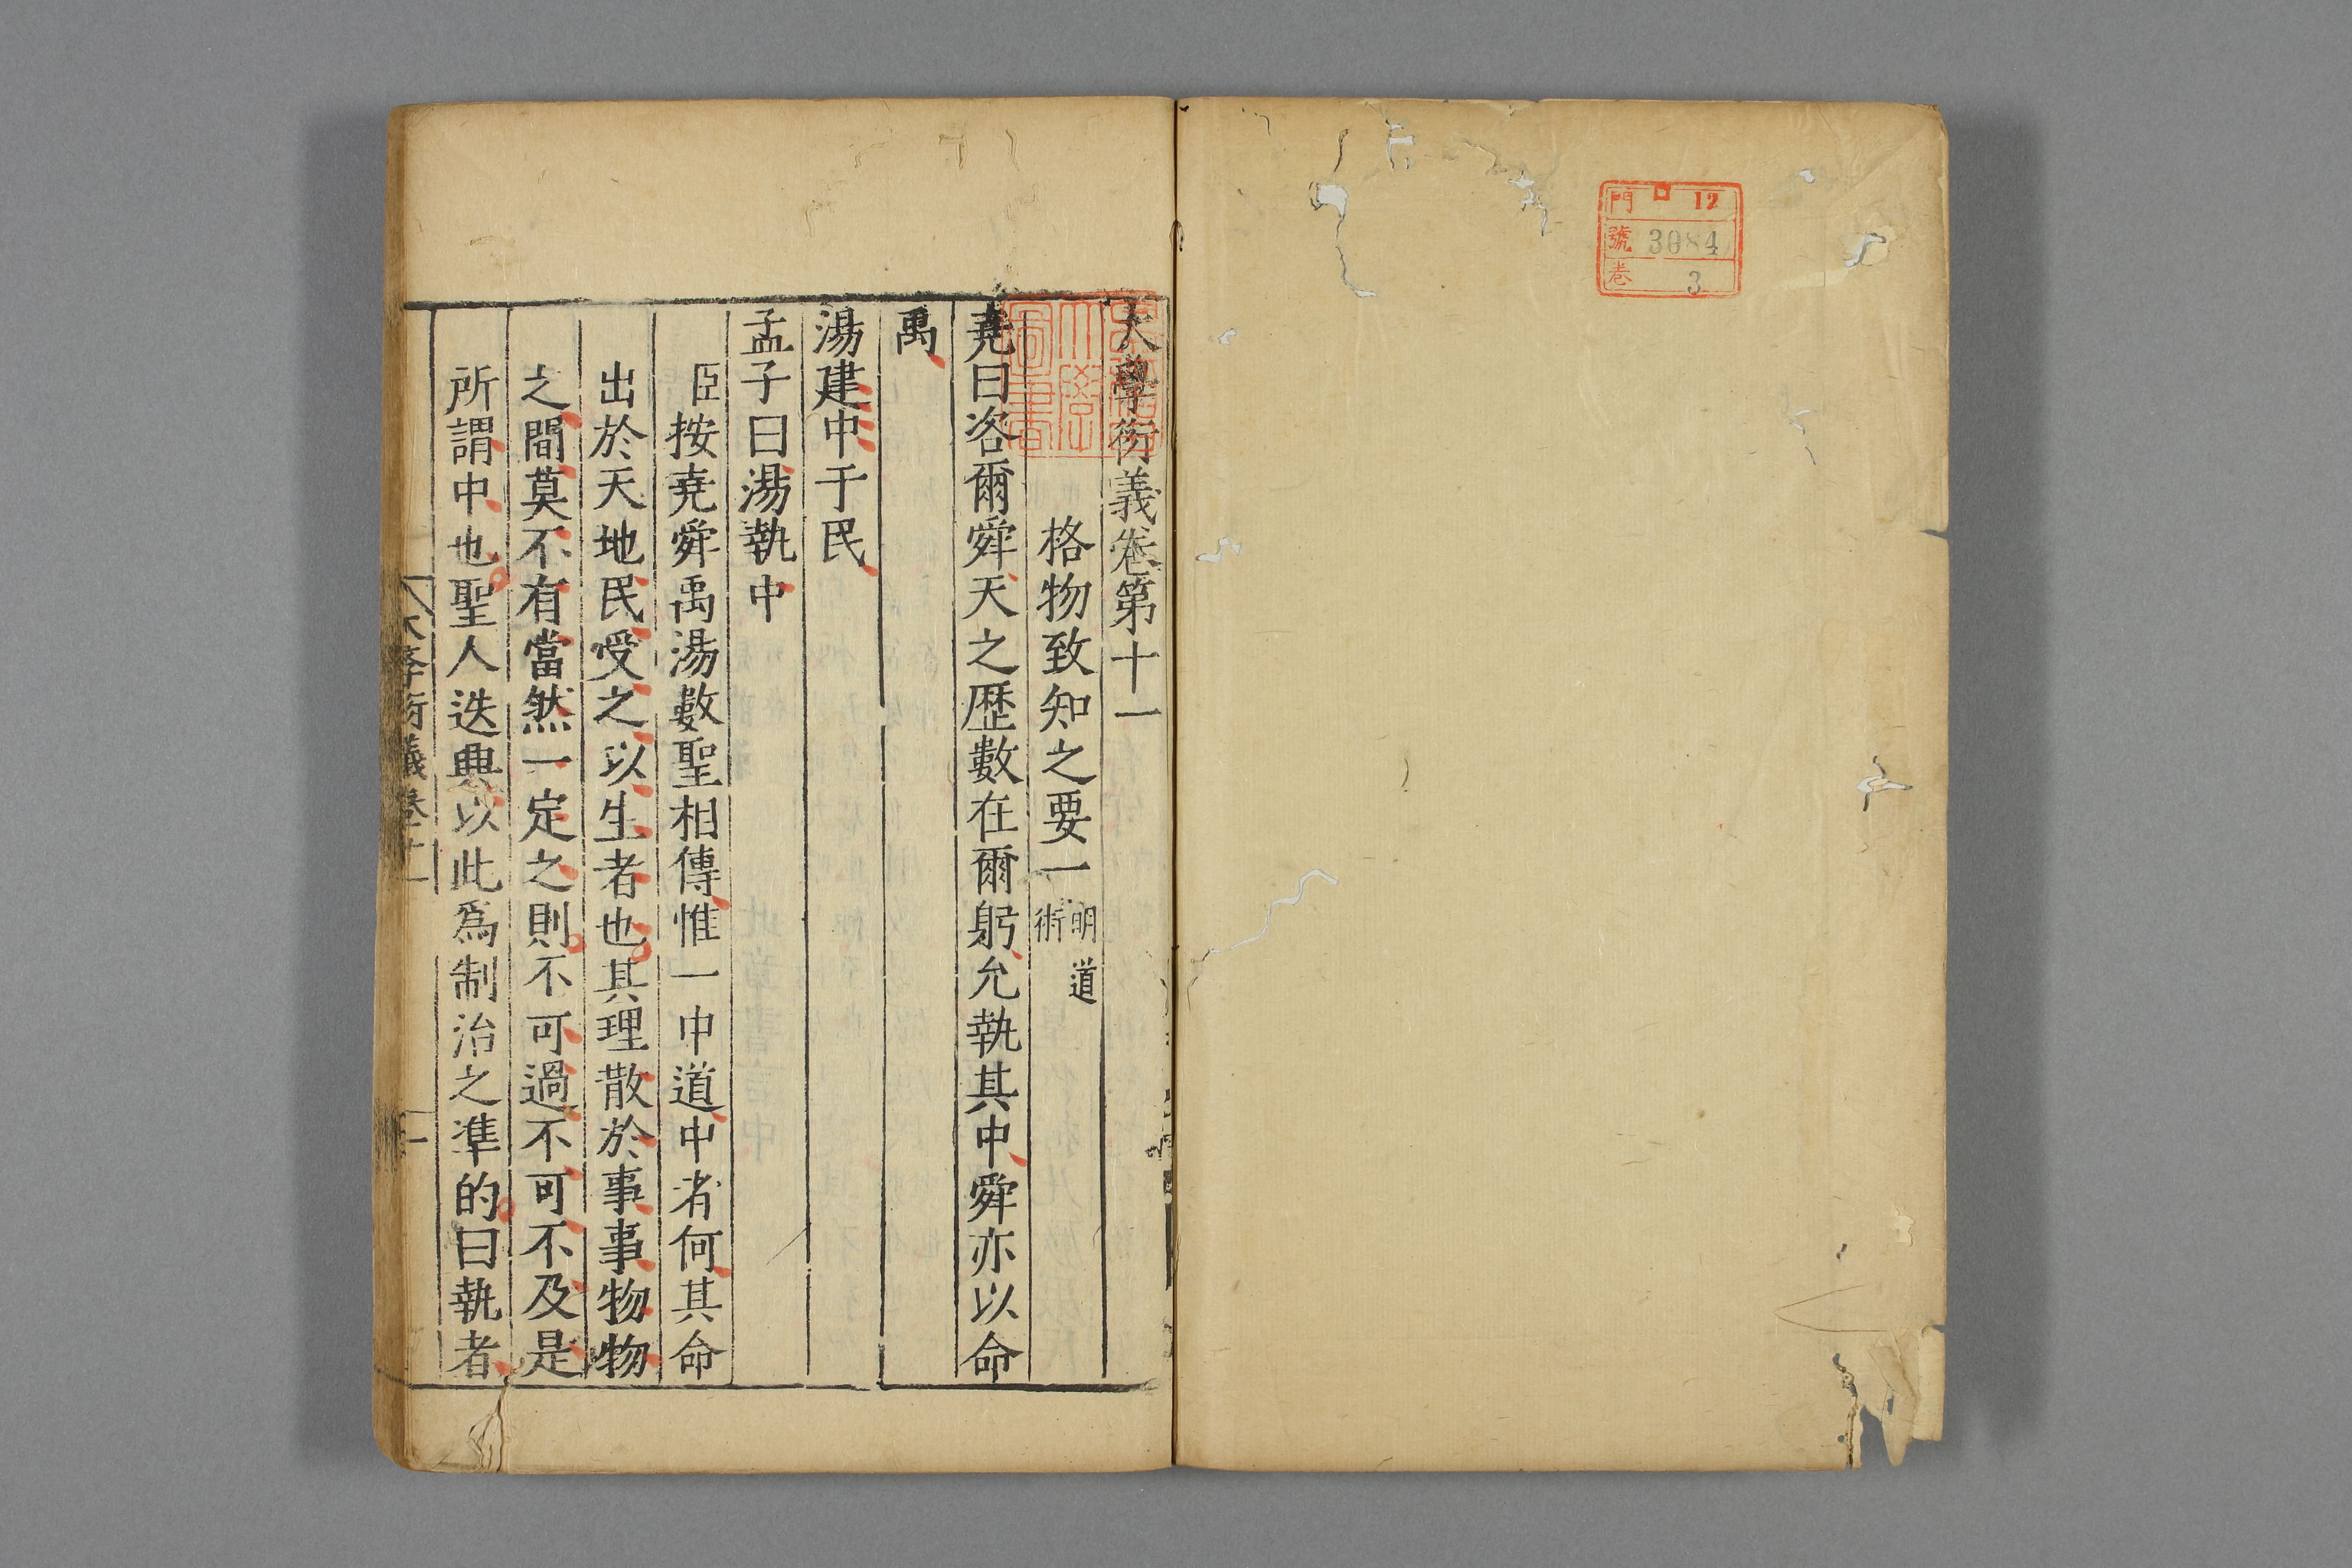 門 12
號 3084
卷 3
大學衍義卷第十一
格物致知之要一 明道術
堯曰咨爾舜天之歷數在爾躬允執其中舜亦以命
禹
湯建中于民
孟子曰湯執中
臣按堯舜禹湯數聖相傳惟一中道中者何其命
出於天地民受之以生者也其理散於事事物物
之間莫不有當然一定之則不可過不可不及是
所謂中也聖人迭興以此爲制治之準的曰執者
大學衍義卷十一
一